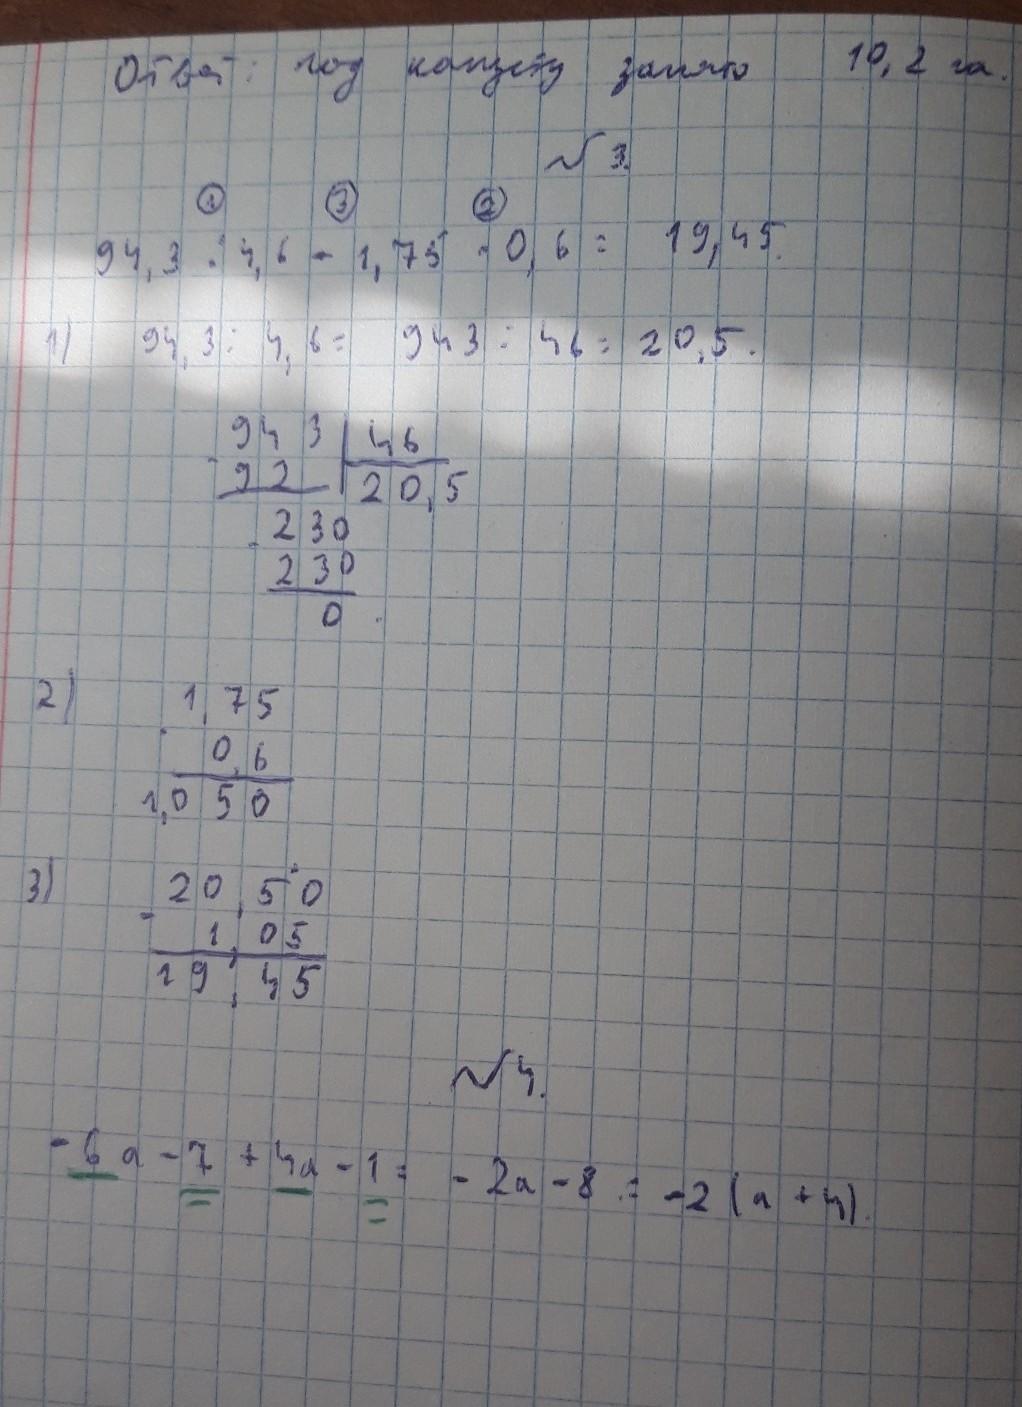 Ответ: под капусту занято 10,2 га.
№ 3.
① ③ ②
94,3 : 4,6 - 1,75 · 0,6 = 19,45.
1) 94,3 : 4,6 = 943 : 46 = 20,5.
943 | 46
- 92 | 20,5
- 230
230
0.
2) 1,75
· 0,6
1,050
3) 20,50
- 1,05
19,45
№ 4.
-6a - 7 + 4a - 1 = -2a - 8 = -2(a + 4).